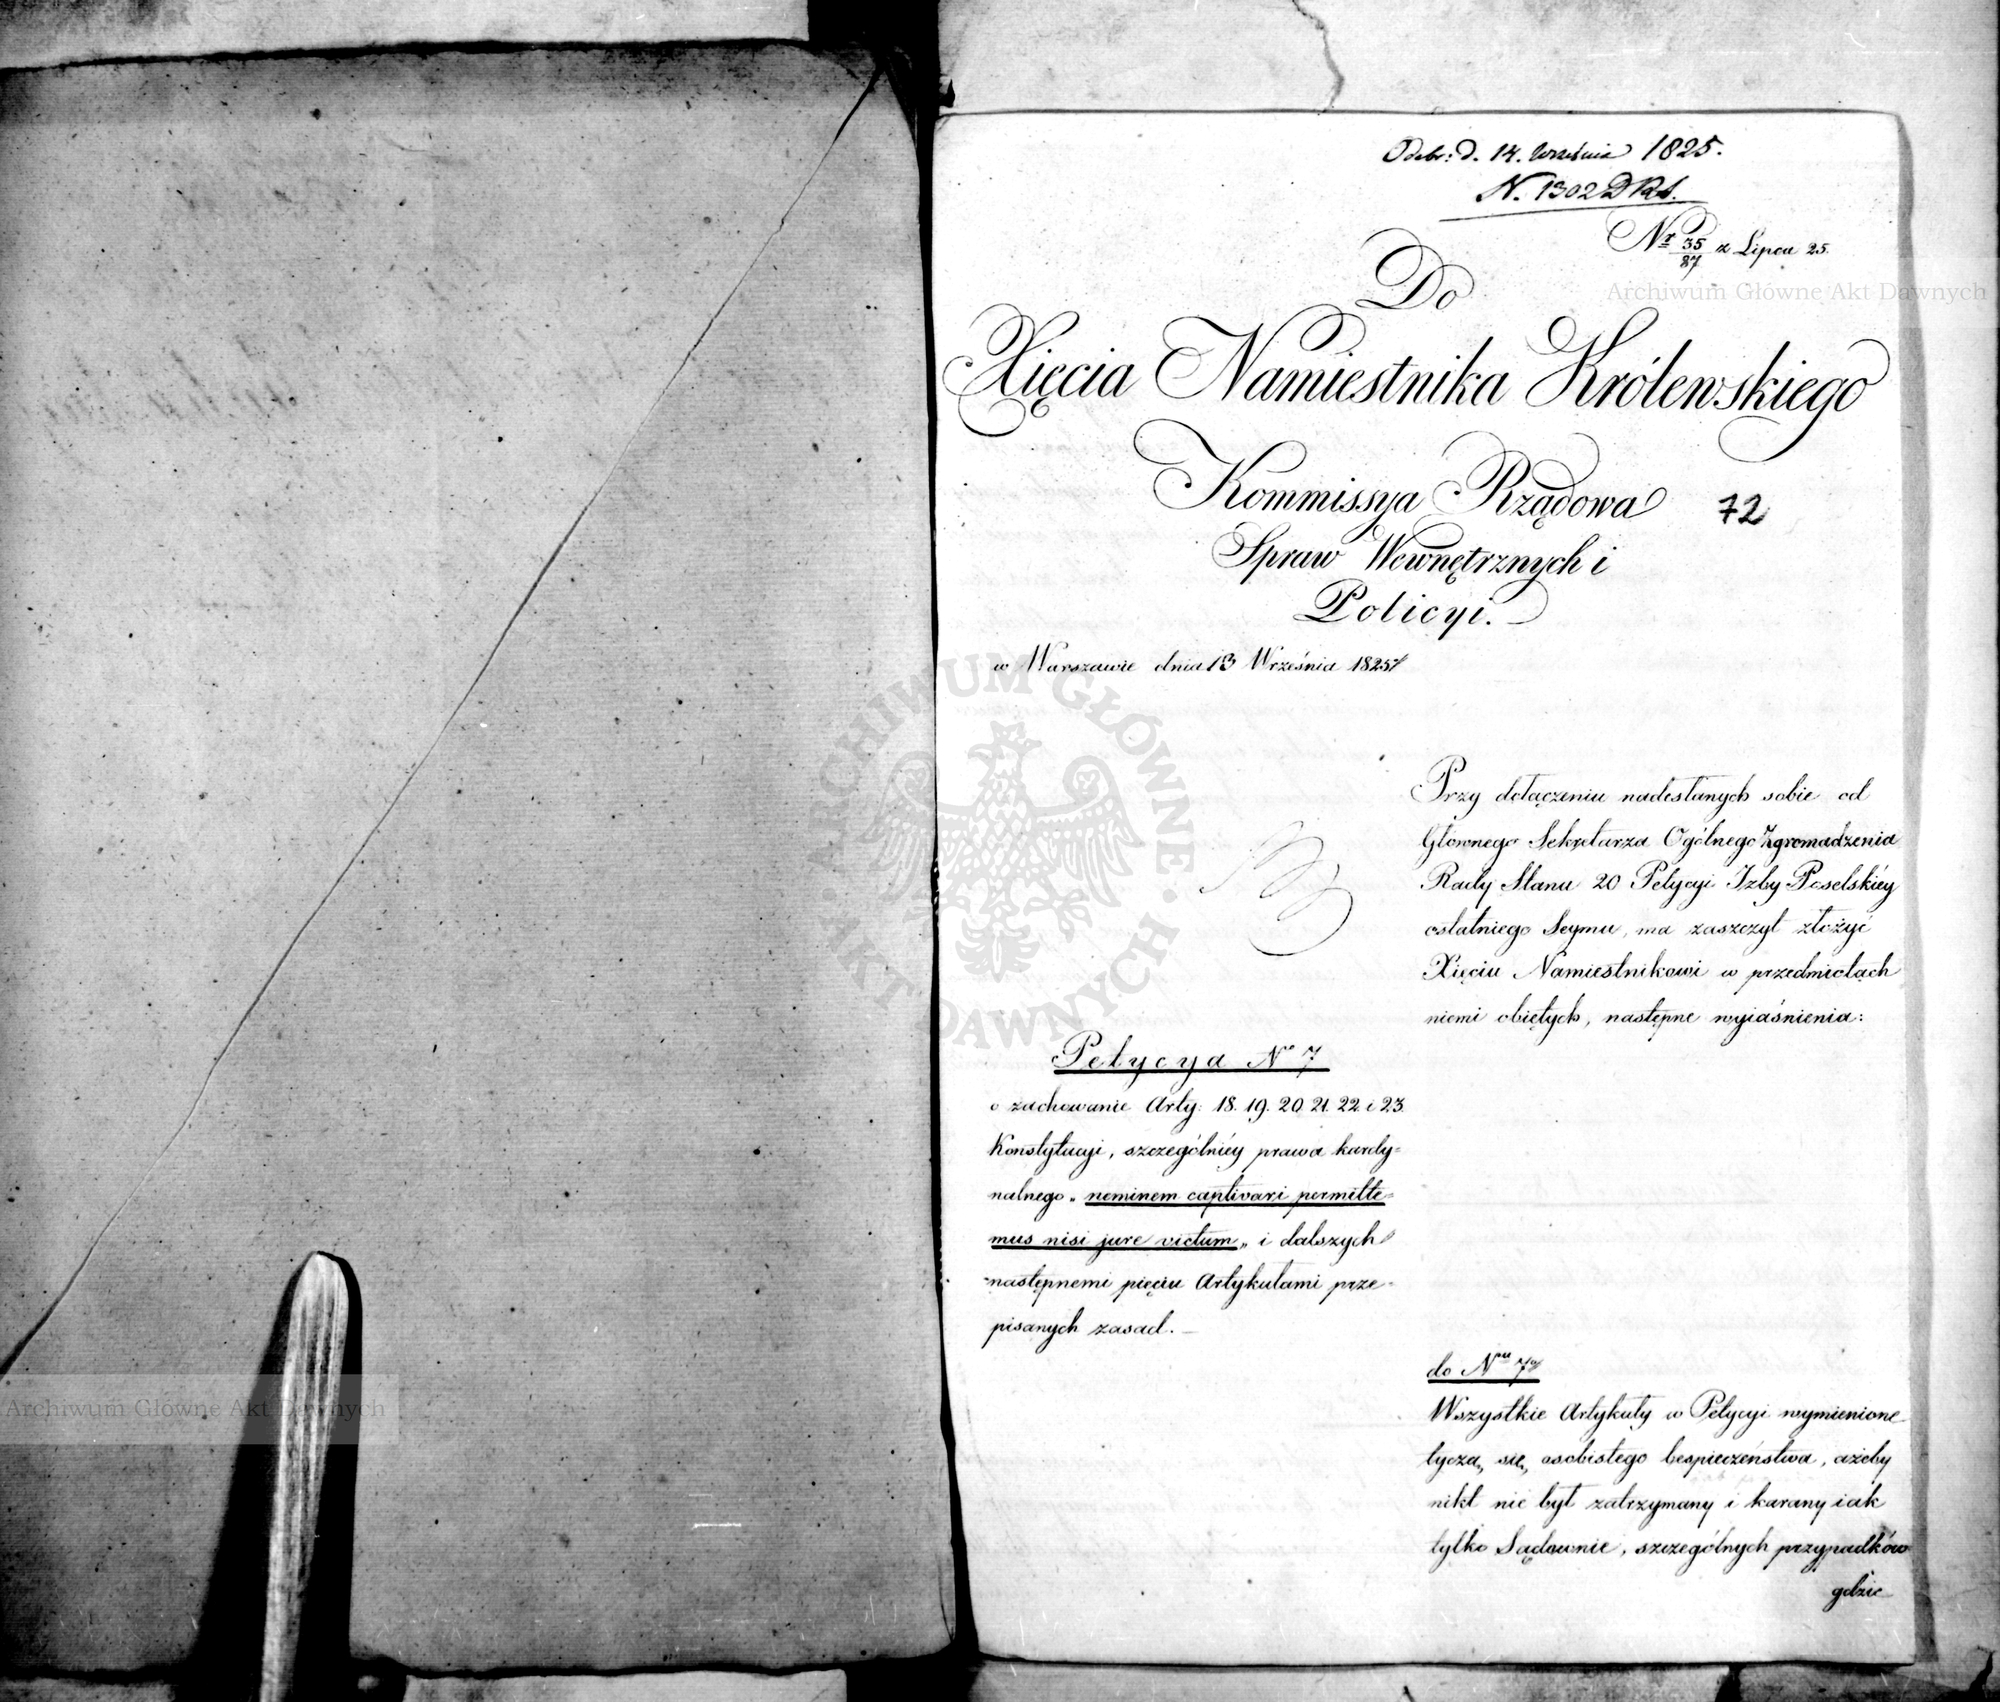 Odebr: d. 14. Września 1825.
N. 1302 D Rs.
Nr 35/87 z Lipca 25.
Do
Xięcia Namiestnika Królewskiego
Kommissya Rządowa
72
Spraw Wewnętrznych i
Policyi.
w Warszawie dnia 13 Września 1825
Przy dołączeniu nadesłanych sobie od
Głownego Sekretarza Ogólnego Zgromadzenia
Rady Stanu 20 Petycyi Izby Poselskiéy
ostatniego Seymu, ma zaszczyt złożyć
Xięciu Namiestnikowi w przedmiotach
niemi obiętych, następne wyiaśnienia:
Petycya No 7
o zachowanie Arty: 18. 19. 20. 21. 22. i 23.
Konstytucyi, szczególniéy prawa kardy=
nalnego „ neminem captivari permitte=
mus nisi jure victum „ i dalszych
następnemi pięciu Artykułami prze=
pisanych zasad. —
do Nru 7o
Wszystkie Artykuły w Petycyi wymienione
tyczą się osobistego bespieczeństwa, ażeby
nikt nie był zatrzymany i karany iak
tylko Sądownie, szczególnych przypadków
gdzie
Archiwum Główne Akt Dawnych
Archiwum Główne Akt Dawnych
ARCHIWUM GŁÓWNE AKT DAWNYCH